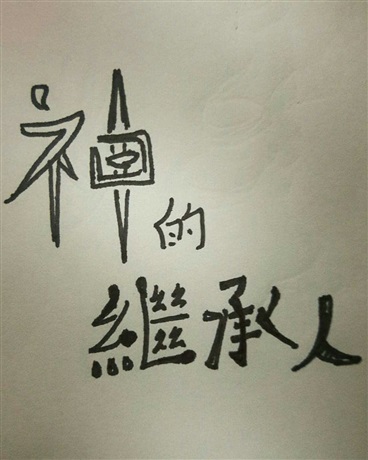 神的
繼承人